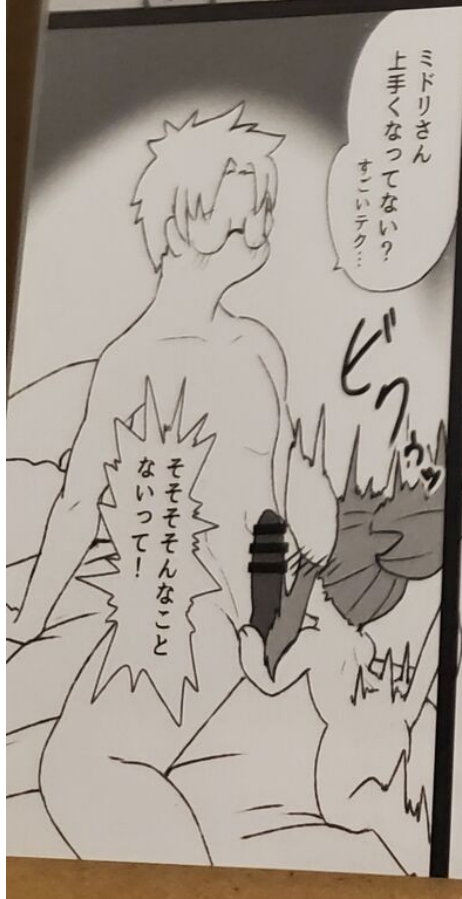 ミドリさん
上手くなってない？
すごいテク…
ビクゥゥッ
そそそそんなこと
ないって！